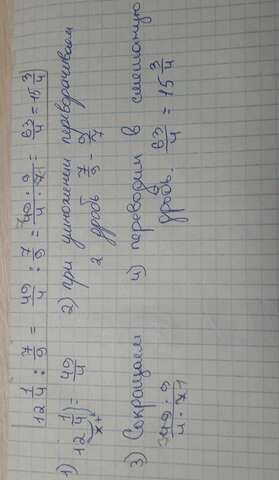 12 1/4 : 7/9 = 49/4 : 7/9 = 49 · 9 / 4 · 7 = 63/4 = 15 3/4
1) 12 1/4 = 49/4
x+
2) при умножении переворачиваем
2 дробь 7/9 - 9/7
3) Сокращаем
49 · 9 / 4 · 7
4) переводим в смешанную
дробь. 63/4 = 15 3/4